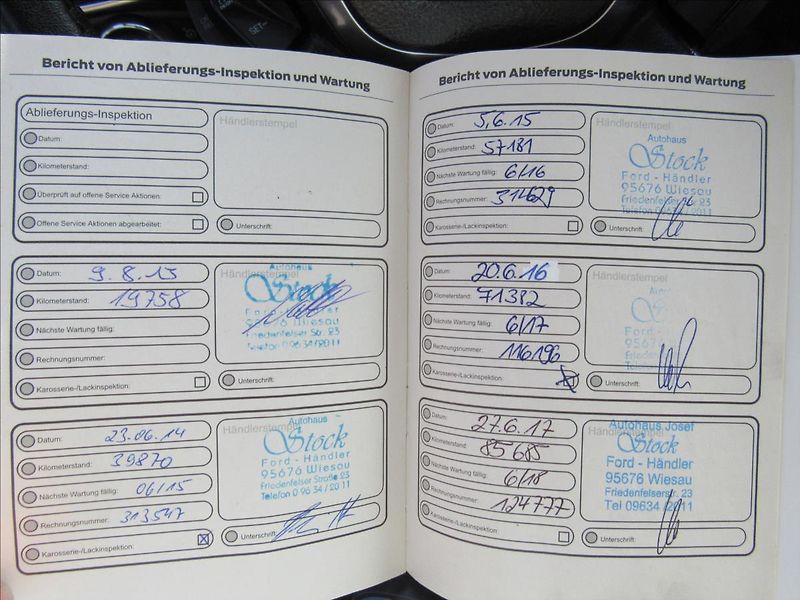 SET-
Bericht von Ablieferungs-Inspektion und Wartung
Ablieferungs-Inspektion
Datum:
Kilometerstand:
Überprüft auf offene Service Aktionen:
Offene Service Aktionen abgearbeitet:
Händlerstempel
Unterschrift:
Datum: 9.8.13
Kilometerstand: 19758
Nächste Wartung fällig:
Rechnungsnummer:
Karosserie-/Lackinspektion:
Händlerstempel
Autohaus
Stock
Ford - Händler
95676 Wiesau
Friedenfelser Str. 23
Telefon 0 96 34 / 2011
Unterschrift:
Datum: 23.06.14
Kilometerstand: 39870
Nächste Wartung fällig: 06/15
Rechnungsnummer: 313547
Karosserie-/Lackinspektion:
Händlerstempel
Autohaus
Stock
Ford - Händler
95676 Wiesau
Friedenfelser Straße 23
Telefon 0 96 34 / 20 11
Unterschrift:
Bericht von Ablieferungs-Inspektion und Wartung
Datum: 5.6.15
Kilometerstand: 57181
Nächste Wartung fällig: 6/16
Rechnungsnummer: 314629
Karosserie-/Lackinspektion:
Händlerstempel
Autohaus
Stock
Ford - Händler
95676 Wiesau
Friedenfelser Straße 23
Telefon 0 96 34 / 2011
Unterschrift:
Datum: 20.6.16
Kilometerstand: 71382
Nächste Wartung fällig: 6/17
Rechnungsnummer: 116196
Karosserie-/Lackinspektion:
Händlerstempel
Unterschrift:
Datum: 27.6.17
Kilometerstand: 85685
Nächste Wartung fällig: 6/18
Rechnungsnummer: 124777
Karosserie-/Lackinspektion:
Händlerstempel
Autohaus Josef
Stock
Ford - Händler
95676 Wiesau
Friedenfelserstr. 23
Tel 09634 / 2011
Unterschrift: